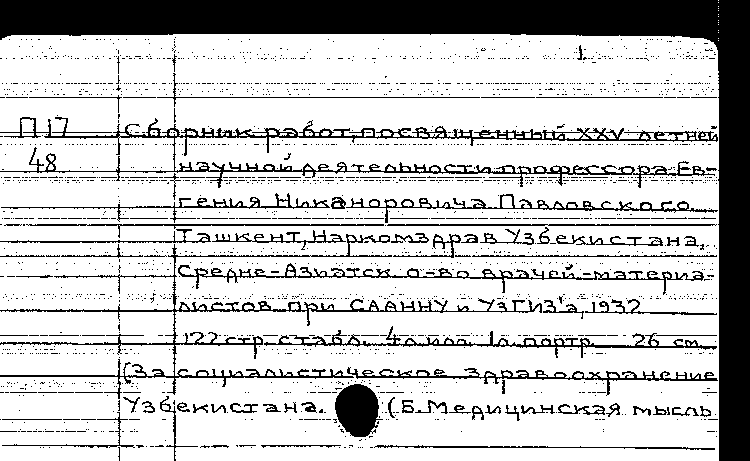 1.
П17 Сборник работ, посвященный XXV летней
48 научной деятельности профессора Ев-
гения Никаноровича Павловского
Ташкент, Наркомздрав Узбекистана,
Средне-Азиатск о-во врачей-материа-
листов при СААННУ и УзГИЗ'а, 1932
122 стр. с табл. 4 л. илл. 1 л. портр. 26 см
(За социалистическое здравоохранение
Узбекистана. (Б. Медицинская мысль